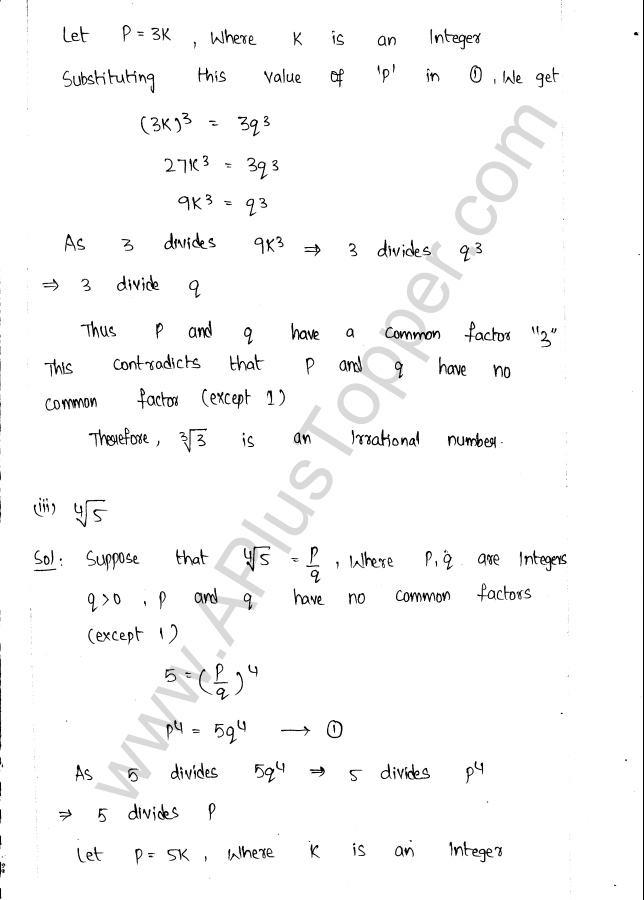 Let P = 3K , Where K is an Integer
Substituting this value of 'p' in ① , We get
(3K)³ = 3q³
27K³ = 3q³
9K³ = q³
As 3 divides 9K³ ⇒ 3 divides q³
⇒ 3 divide q
Thus P and q have a common factor "3"
This contradicts that P and q have no
common factor (except 1)
Therefore, ∛3 is an Irrational number.
(iii) ∜5
Sol: Suppose that ∜5 = P/q , Where P, q are Integers
q>0 , p and q have no common factors
(except 1)
5 = (P/q)⁴
P⁴ = 5q⁴ ⟶ ①
As 5 divides 5q⁴ ⇒ 5 divides p⁴
⇒ 5 divides P
Let P = 5K , Where K is an Integer
www.APlusTopper.com